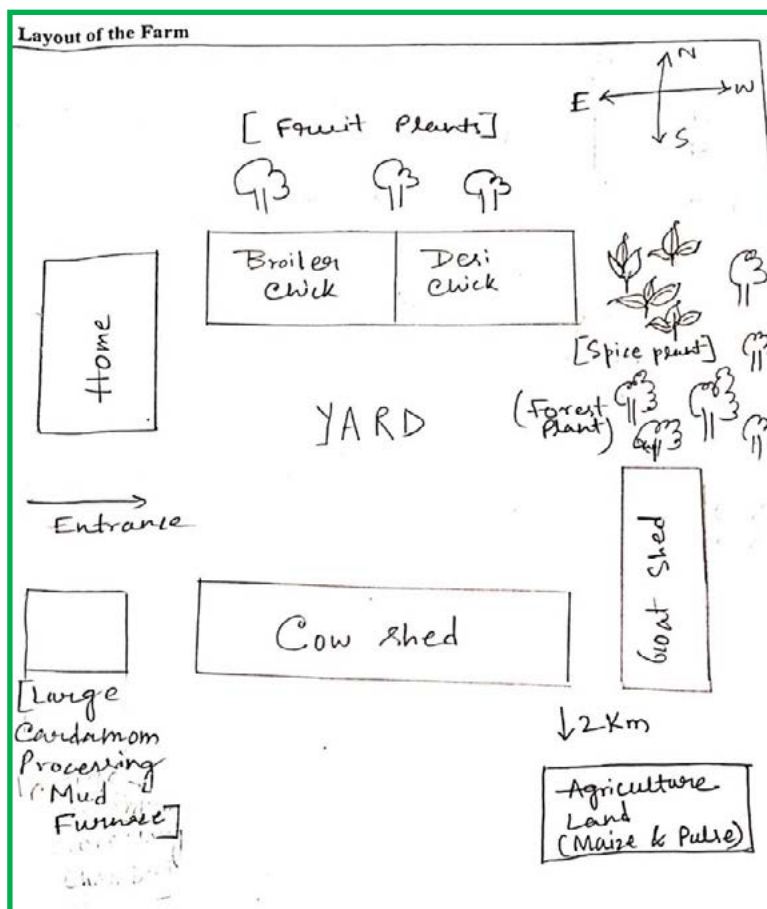 Layout of the Farm
N
E W
S
[Fruit Plants]
Broiler
Chick
Desi
Chick
Home
[Spice plant]
(Forest
Plant)
YARD
Entrance
Goat Shed
Cow shed
[Large
Cardamom
Processing
Mud
Furnace]
2 Km
Agriculture
Land
(Maize & Pulse)